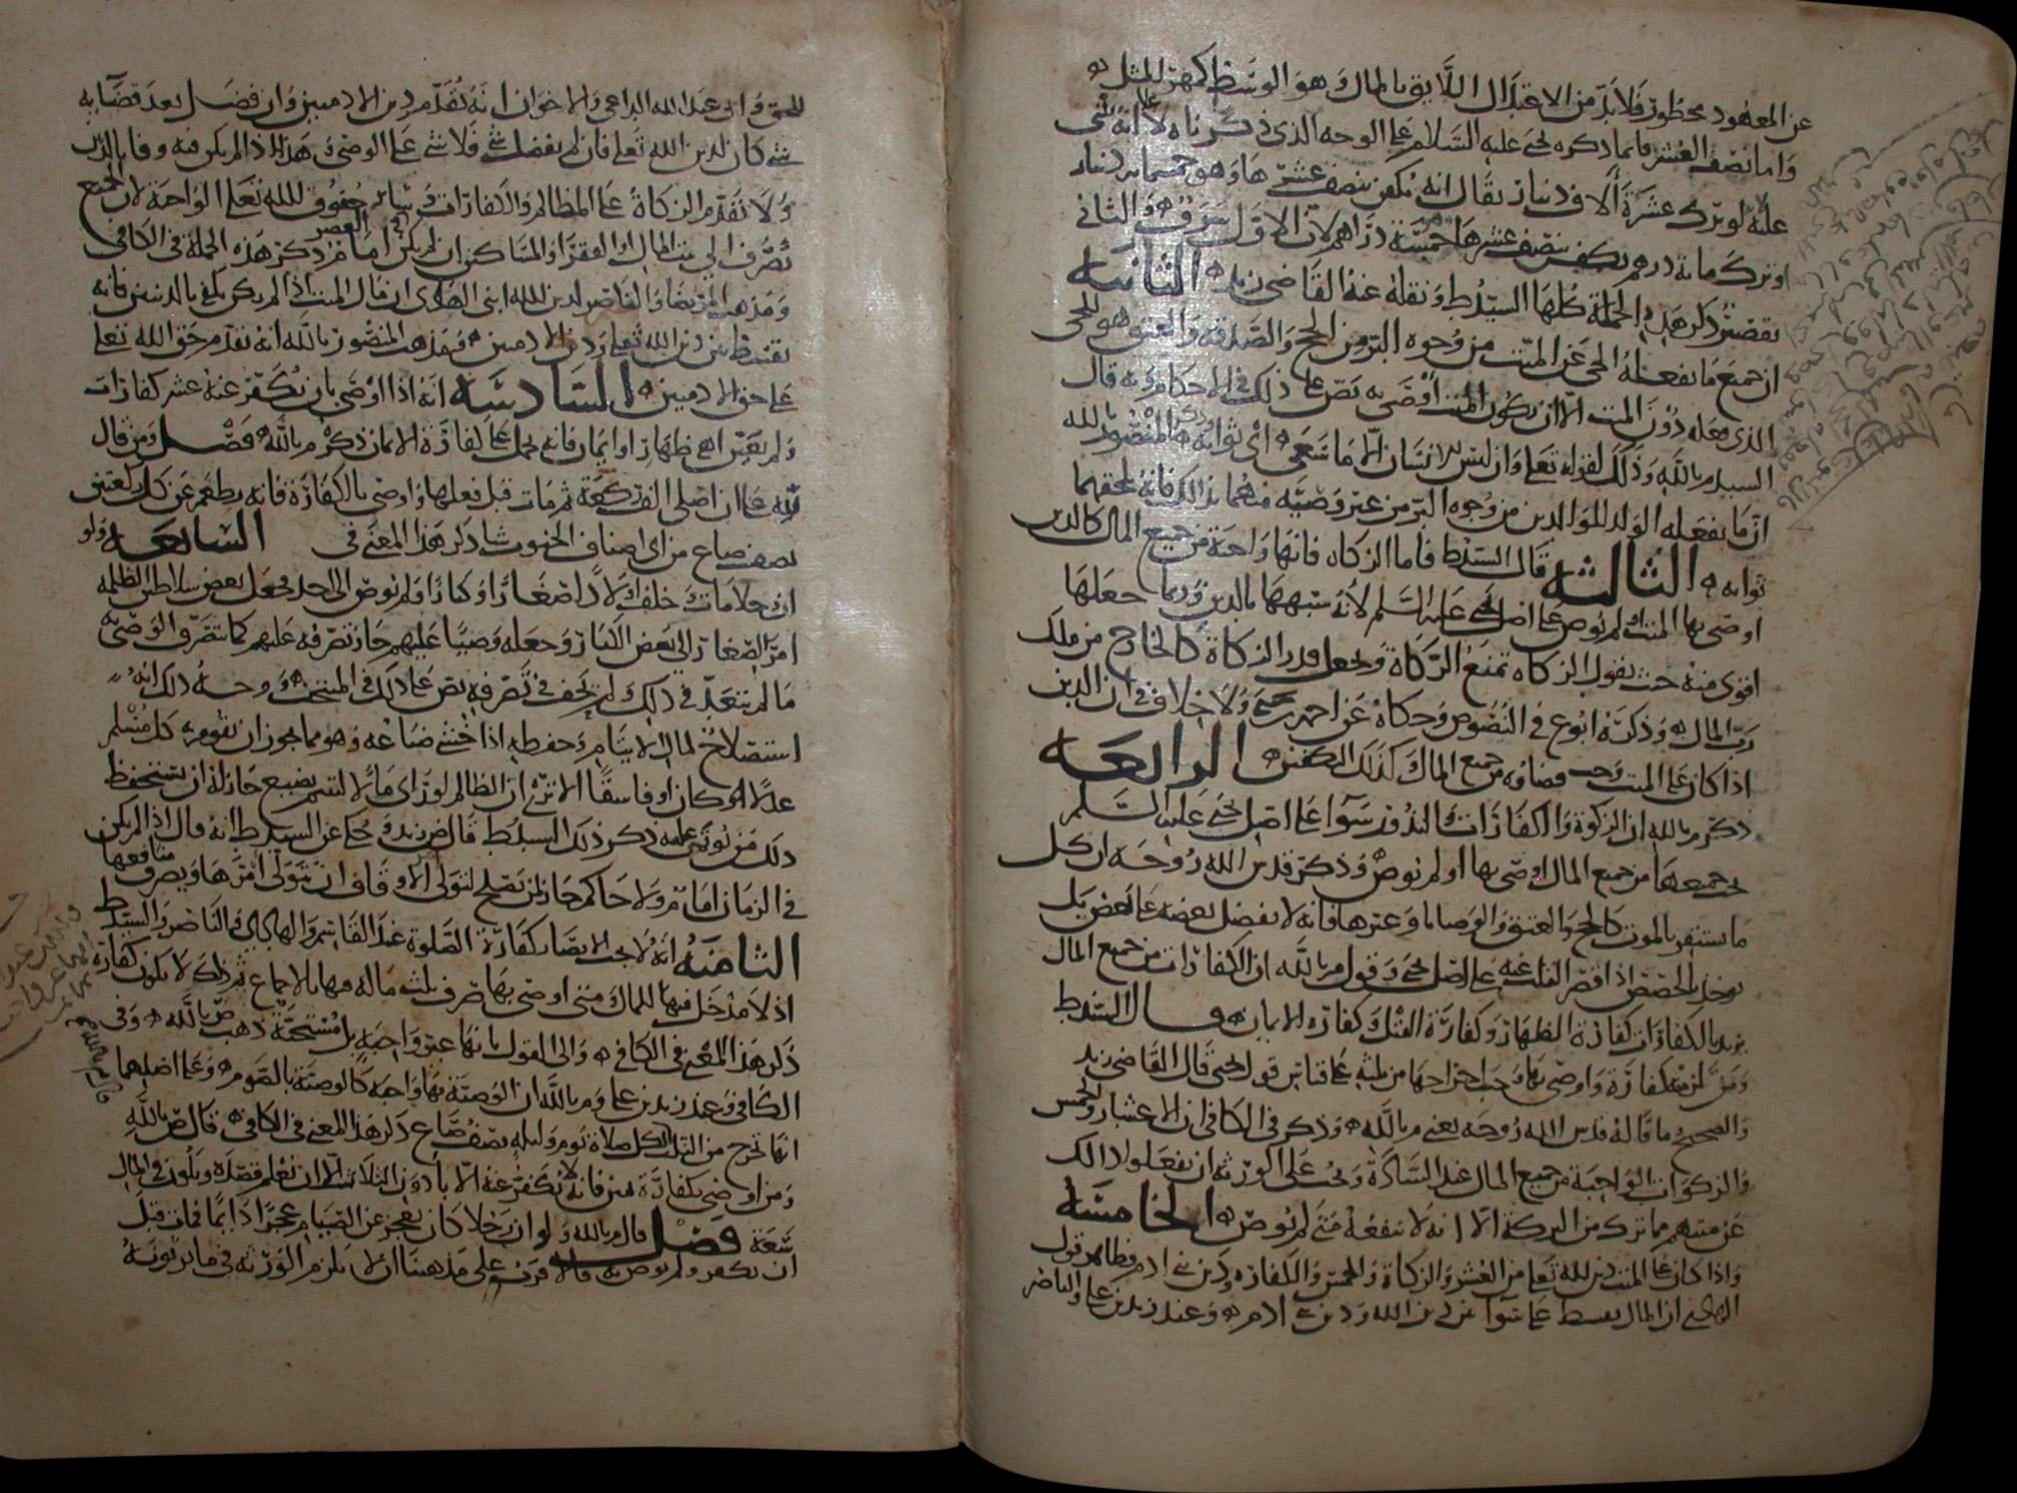 عن المعهود محظور فلا بد من الاعتدال اللايق بالمال وهو الوسط كمهر المثل
واما نصف العشر فانما ذكره يحيى عليه السلام على الوجه الذي ذكرناه لا انه شي
علة لو ترك عشرة آلاف دينار يقال انه يكفن بنصف عشرها وهو خمسماية دينار
او ترك ماية درهم يكفن بنصف عشرها خمسة دراهم لان الاول سرف والثاني
تقصير ذكر هذه الجملة كلها السيد ط ونقله عنه القاضي زيد الثانية
ان جميع ما يفعله الحي عن الميت من وجوه البر من الحج والصدقة والعتق هو للحي
الذي فعله دون الميت الا ان يكون الميت اوصى به نص على ذلك في الاحكام وبه قال
السيد م بالله وذلك لقوله تعالى وان ليس للانسان الا ما سعى أي ثوابه وذكر المنصور بالله
ان ما يفعله الولد للوالدين من وجوه البر من غير وصية منهما بذلك فانه يلحقهما
ثوابه الثالثة قال السيد ط فاما الزكاه فانها واجبة من جميع المال كالدين
اوصى بها الميت او لم يوص على اصل يحيى عليه السلم لأنه شبهها بالدين وربما جعلها
اقوى منه حيث يقول الزكاه تمنع الزكاة ويجعل قدر الزكاة كالخارج من ملك
رب المال وذكره ابو ع في النصوص وحكاه عن احمد بن يحيى ولا خلاف في ان الدين
اذا كان على الميت وجب قضاؤه من جميع المال كذلك الكفن الرابعة
ذكر م بالله ان الزكوة والكفارات والنذور سوآء على اصل يحيى عليه السلم
يجب جميعها من جميع المال اوصى بها او لم يوص وذكر قدس الله روحه ان كل
ما يستقر بالموت كالحج والعتق والوصايا وغيرها فانه لا يفضل بعضه على بعض بل
يوخذ بالحصص اذا قصر الثلث عنه على اصل يحيى وقول م بالله ان الكفارات من جميع المال
يريد بالكفارات كفارة الظهار وكفارة القتل وكفاره الايمان قال السيد ط
ومن لزمته كفارة واوصى بها وجب اخراجها من ثلثه على قياس قول يحيى قال القاضي زيد
والصحيح ما قاله قدس الله روحه يعني م بالله وذكر في الكافي ان الاعشار والخمس
والزكوات الواجبة من جميع المال عند السادة ويجب على الورثة ان يفعلوا ذلك
عن ميتهم مما ترك من التركة الا انه لا ينفعه متى لم يوص الخامسة
واذا كان على الميت دين لله تعالى من العشر والزكاة والخمس والكفاره ودين بني ادم فظاهر قول
الهادي ان المال يقسط على سوآء بين دين الله ودين بني ادم وعند زيد بن علي والناصر
للحق وابي عبد الله الداعي والاخوان انه يقدم دين الادميين وان فضل بعد قضايه
شي كان لدين الله تعالى فان لم يفضل شي فلا شي على الوصي هذا اذا لم يكن فيه وفا بالدين
ولا تقدم الزكاة على المظالم والكفارات وساير حقوق لله تعالى الواجبة لان الجميع
تصرف الى بيت المال او الفقرا والمساكين ان لم يكن في العصر امام ذكر هذه الجملة في الكافي
ومذهب المرتضى والناصر لدين لله ابني الهادي ان مال الميت اذا لم يكن يكفي بالدينين فانه
يقسط بين دين الله تعالى ودين الادميين ومذهب المنصور بالله انه تقدم حق الله تعالى
على حق الادميين السادسة انه اذا اوصى بان يكفر عنه عشر كفارات
ولم يعين اهي ظهار او ايمان فانه يحمل على كفارة الايمان ذكره م بالله فصل ومن قال
لله علي ان اصلي الف ركعة ثم مات قبل فعلها واوصى بالكفارة فانه يطعم عن كل ركعتين
نصف صاع من اي اصناف الحبوب شا ذكر هذا المعنى في السابعة ولو
ان رجلا مات وخلف اولادا صغارا وكبارا ولم يوص الى احد فجعل بعض سلاطين الظلمه
امر الصغار الى بعض الكبار وجعله وصيا عليهم جاز تصرفه عليهم كما يتصرف الوصي
ما لم يتعد في ذلك او يحف في تصرفه نص على ذلك في المنتخب ووجه ذلك انه
استصلاح لمال الايتام وحفظه اذا خشي ضياعه وهو مما يجوز ان يقوم به كل مسلم
عدلا كان او فاسقا الا ترى ان الظالم لو راى مالا ليتيم يضيع جاز له ان يستحفظ
ذلك من يوتمن عليه ذكر ذلك السيد ط قال ض زيد وحكي عن السيد ط انه قال اذا لم يكن
في الزمان امام ولا حاكم جاز لمن يصلح لتولي الاوقاف ان يتولى امرها ويصرف منافعها
الثامنة انه لا يجب الايصا بكفارة الصلوة عند القاسم والهادي والناصر والسيد ط
اذ لا مدخل فيها للمال متى اوصى بها صرف ثلث ماله فيها بالاجماع ثم ذلك لا يكون كفارة
ذكر هذا المعنى في الكافي والى القول بانها غير واجبة بل مستحبة ذهب ض بالله وفي
الكافي وعند زيد بن علي وم بالله ان الوصية بها واجبة كالوصية بالصوم وعلى اصلهما
انها تخرج من الثلث لكل صلاة يوم وليله نصف صاع ذكر هذا المعنى في الكافي قال ض بالله
ومن اوصى بكفارة يمين فانه لا يكفر عنه الا بادون الثلاثة الا ان يعلم قصده ويكون في المال
سعة فصل قال م بالله ولو ان رجلا كان يعجز عن الصيام عجزا دايما فمات قبل
ان يكفر ولم يوص به فالاقرب على مذهبنا ان لا يلزم الورثة في ما يرثونه